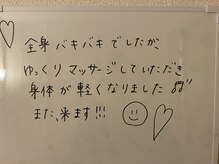 全身バキバキでしたが、
ゆっくりマッサージしていただき
身体が軽くなりました♫
また、来ます!!!